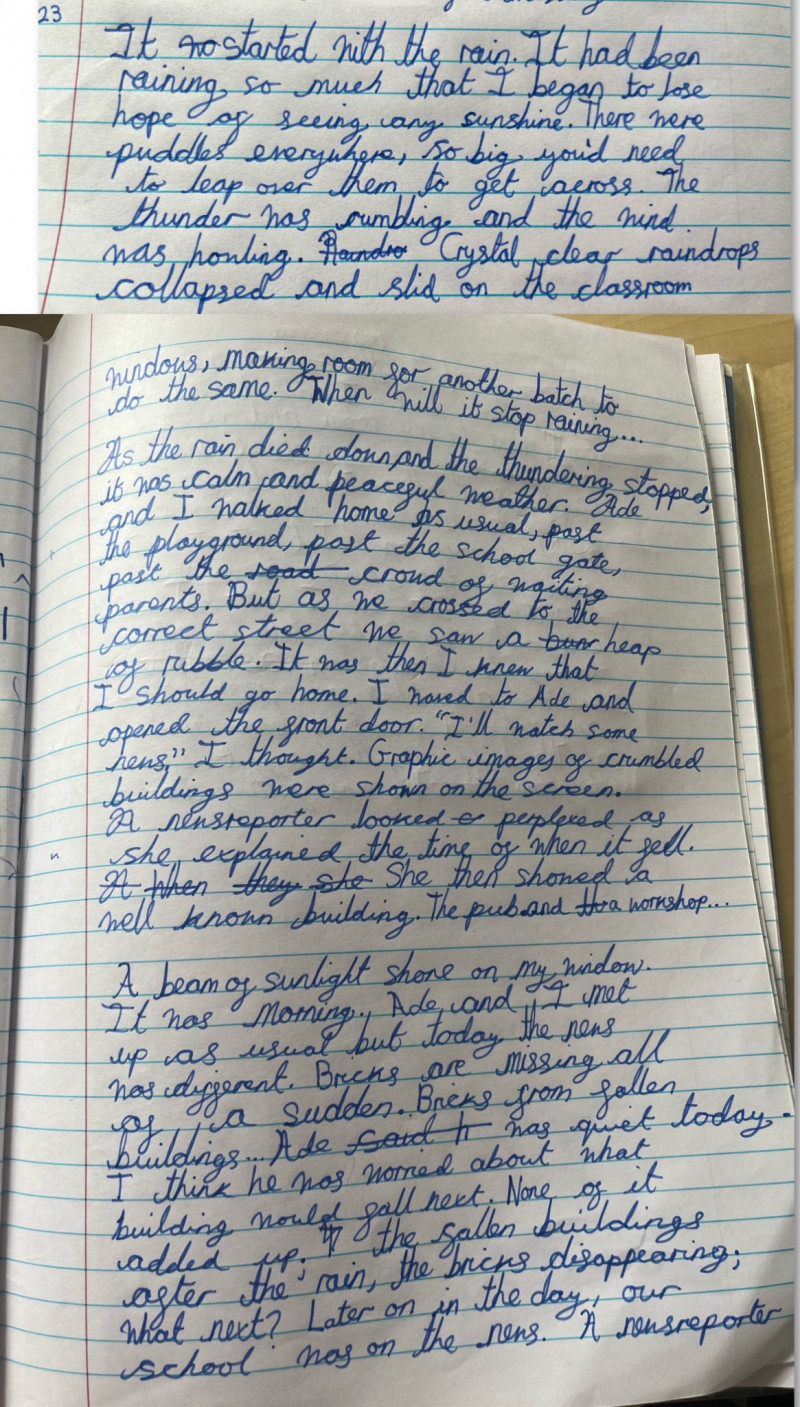 23
It started with the rain. It had been
raining so much that I began to lose
hope of seeing any sunshine. There were
puddles everywhere, so big you'd need
to leap over them to get across. The
thunder was rumbling and the wind
was howling. Raindro Crystal clear raindrops
collapsed and slid on the classroom
windows, making room for another batch to
do the same. When will it stop raining...
As the rain died down,and the thundering stopped,
it was calm and peaceful weather. Ade
and I walked home as usual, past
the playground, past the school gate,
past the road crowd of waiting
parents. But as we crossed to the
correct street we saw a heap
of rubble. It was then I knew that
I should go home. I waved to Ade and
opened the front door. "I'll watch some
news," I thought. Graphic images of crumbled
buildings were shown on the screen.
A newsreporter looked perplexed as
she explained the time of when it fell.
A When they she She then showed a
well known building. The pub and a workshop...
A beam of sunlight shone on my window.
It was Morning. Ade and I met
up as usual but today the news
was different. Bricks are missing all
of a sudden. Bricks from fallen
buildings... Ade said h was quiet today.
I think he was worried about what
building would fall next. None of it
added up. the fallen buildings
after the rain, the bricks disappearing;
What next? Later on in the day, our
school was on the news. A newsreporter